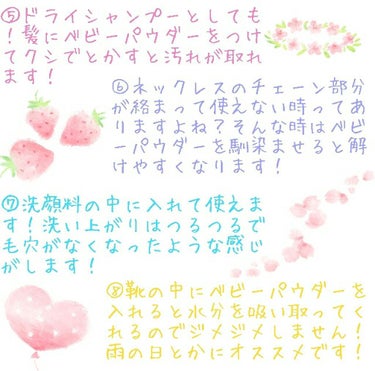 ⑤ドライシャンプーとしても
！髪にベビーパウダーをつけ
てクシでとかすと汚れが取れ
ます！
⑥ネックレスのチェーン部分
が絡まって使えない時ってあ
りますよね？そんな時はベビ
ーパウダーを馴染ませると解
けやすくなります！
⑦洗顔料の中に入れて使えま
す！洗い上がりはつるつるで
毛穴がなくなったような感じ
がします！
⑧靴の中にベビーパウダーを
入れると水分を吸い取ってく
れるのでジメジメしません！
雨の日とかにオススメです！